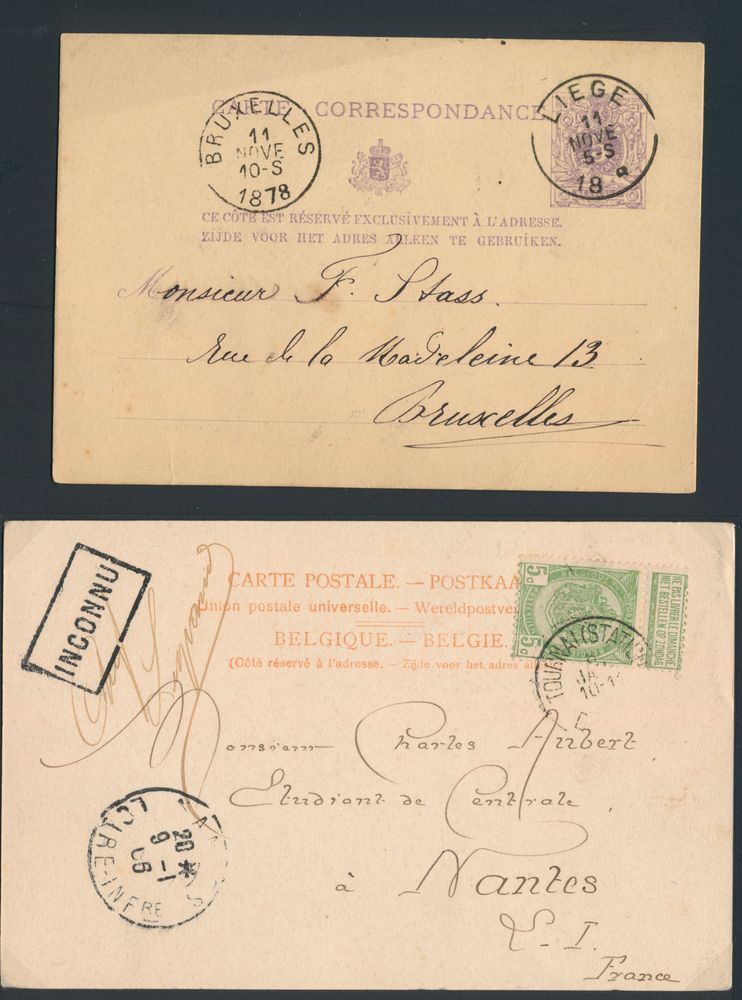 CARTE CORRESPONDANCE
BRUXELLES
11
NOVE
10-S
1878
LIEGE
11
NOVE
5-S
18 8
CE CÔTÉ EST RÉSERVÉ EXCLUSIVEMENT À L'ADRESSE.
ZIJDE VOOR HET ADRES ALLEEN TE GEBRUIKEN.
Monsieur F. Stass.
Rue de la Madeleine 13
Bruxelles
INCONNU
CARTE POSTALE. — POSTKAA
Union postale universelle. — Wereldpostver
BELGIQUE. — BELGIE.
(Côté réservé à l'adresse. — Zijde voor het adres all
5c
5c
NE PAS LIVRER LE DIMANCHE
NIET BESTELLEN OP ZONDAG
TOURNAI (STATION)
JA
10-1
Monsieur Charles Aubert
Etudiant de Centrale
à Nantes
L. I.
France
20
9 -1
06
LOIRE-INFRE